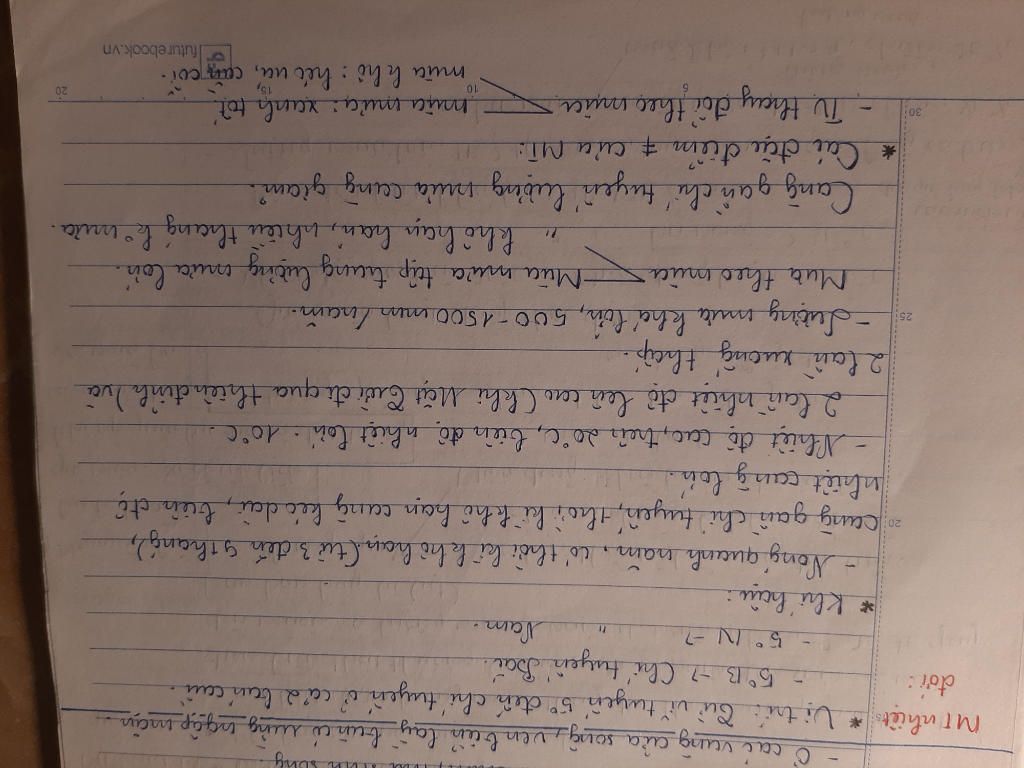 - Ở các vùng cửa sông, ven biển lầy bùn có rừng ngập mặn
MT nhiệt
đới:
* Vị trí: Từ vĩ tuyến 5° đến chí tuyến ở cả 2 bán cầu.
- 5°B → Chí tuyến Bắc.
- 5°N → " Nam.
* Khí hậu:
- Nóng quanh năm, có thời kì khô hạn (từ 3 đến 9 tháng),
càng gần chí tuyến, thời kì khô hạn càng kéo dài, biên độ
nhiệt càng lớn.
- Nhiệt độ cao, trên 20°C, biên độ nhiệt lớn: 10°C.
2 lần nhiệt độ lên cao (khi Mặt Trời đi qua thiên đỉnh) và
2 lần xuống thấp.
- Lượng mưa khá lớn, 500 - 1500 mm/năm.
Mưa theo mùa Mùa mưa tập trung lượng mưa lớn.
" khô hạn hán, nhiều tháng k° mưa.
Càng gần chí tuyến lượng mưa càng giảm.
* Các đặc điểm ≠ của MT:
- TV thay đổi theo mùa mùa mưa: xanh tốt
mùa khô: héo úa, cằn cỗi.
futurebook.vn